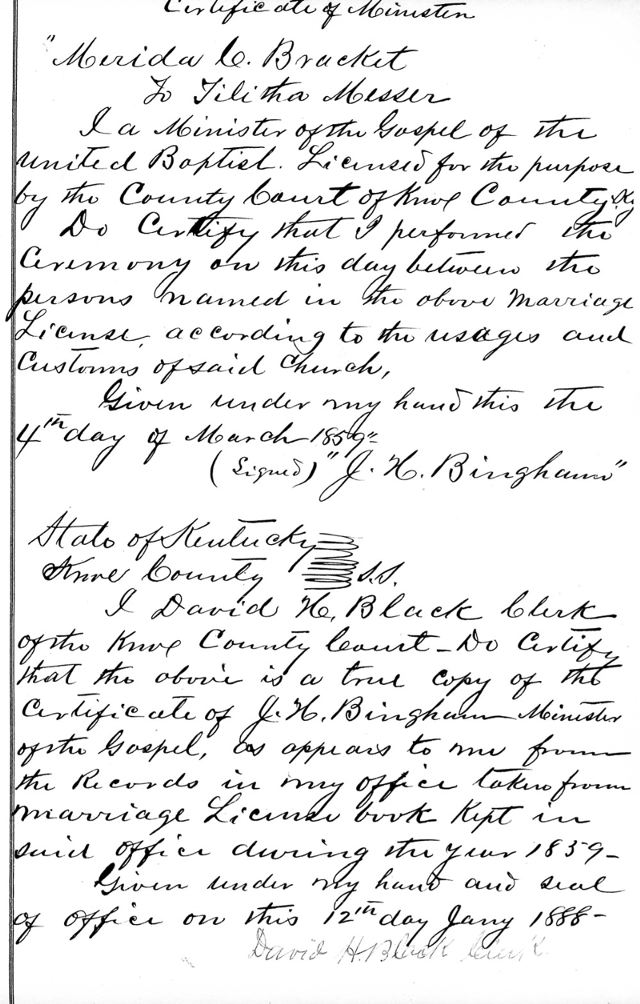 Certificate of Minister
"Merida C. Bracket
To Tilitha Messer
I a Minister of the Gospel of the
united Baptist. Licensed for the purpose
by the County Court of Knox County, Ky
Do Certify that I performed the
Ceremony on this day between the
persons named in the above marriage
License, according to the usages and
Customs of said Church,
Given under my hand this the
4th day of March 1859"
(Signed) "J. H. Bingham"
State of Kentucky
Knox County S.S.
I David H. Black Clerk
of the Knox County Court - Do Certify
that the above is a true copy of the
Certificate of J. H. Bingham Minister
of the Gospel, as appears to me from
the Records in my office taken from
marriage License book Kept in
said office during the year 1859-
Given under my hand and seal
of office on this 12th day Jany 1888-
David H. Black Clerk